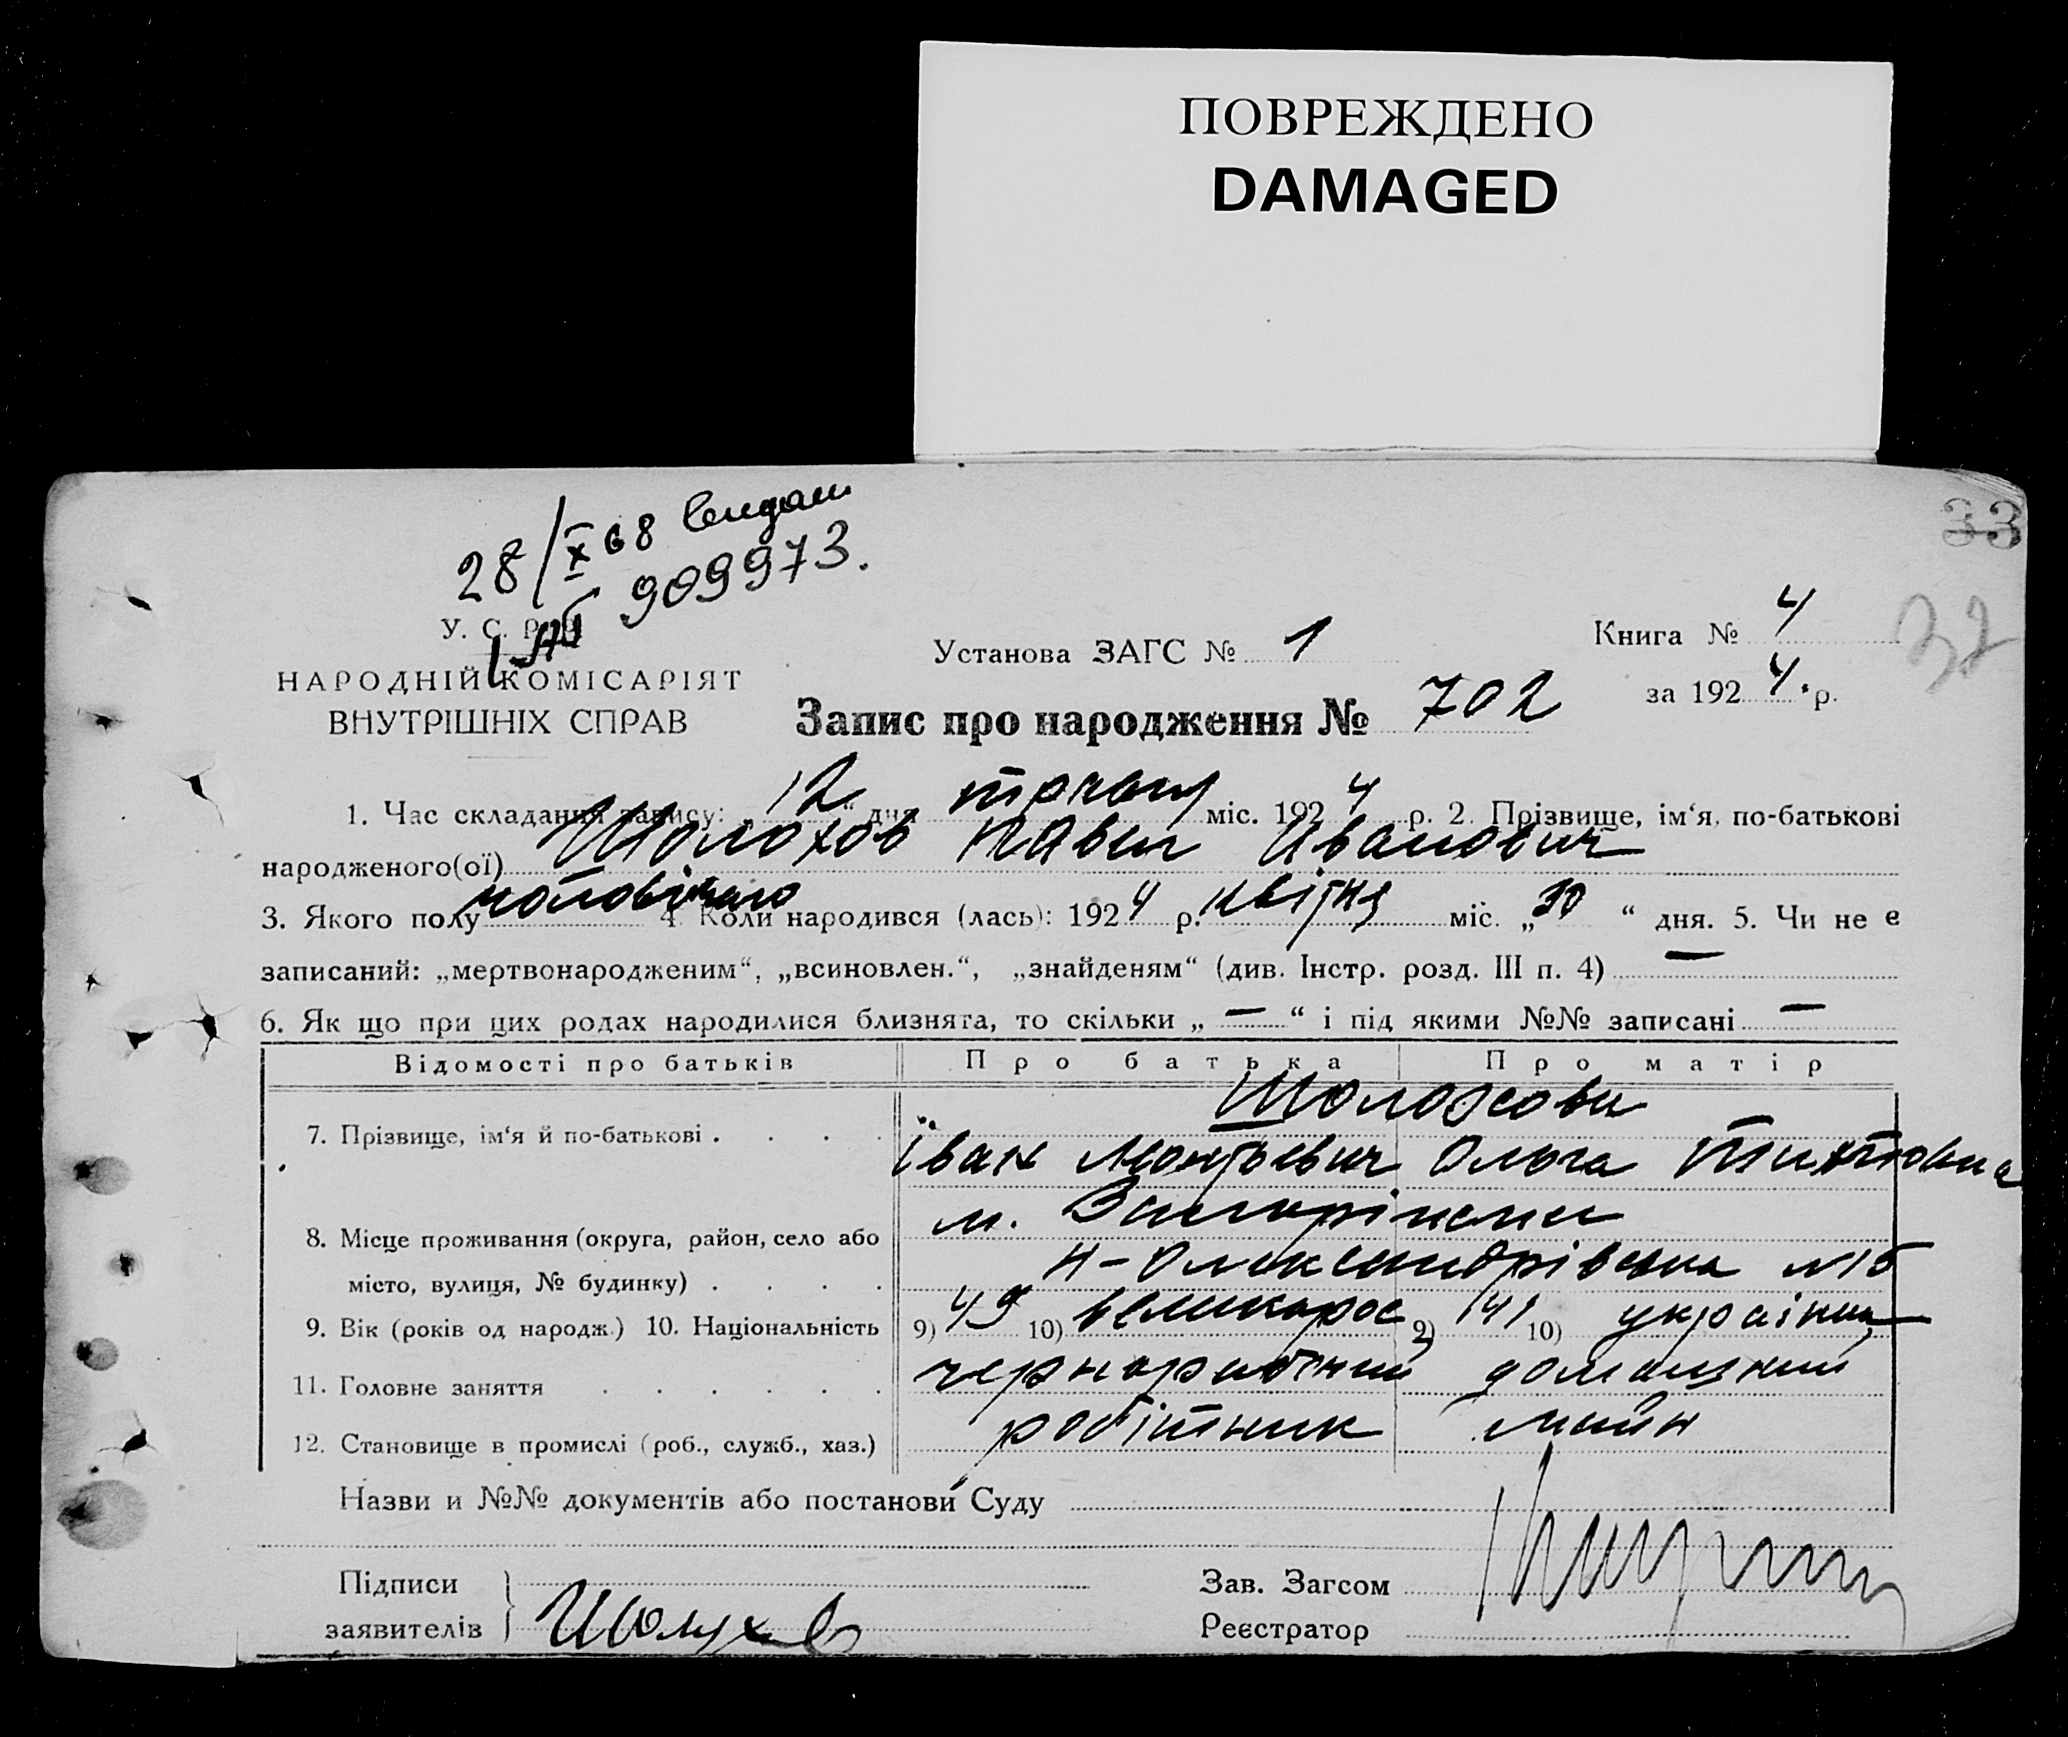 ПОВРЕЖДЕНО
DAMAGED
33
28/X 68
909973.
32
У. С. Р. Р.
НАРОДНІЙ КОМІСАРІЯТ
ВНУТРІШНІХ СПРАВ
Установа ЗАГС № 1
Книга № 4
за 1924 р.
Запис про народження № 702
1. Час складання запису: „12“ дня травня міс. 1924 р. 2. Прізвище, ім‘я, по-батькові
народженого(ої) Шолохов Павел Иванович
3. Якого полу чоловічого 4. Коли народився (лась): 1924 р. квітня міс. „30“ дня. 5. Чи не є
записаний: „мертвонародженим“, „всиновлен.“, „знайденям“ (див. Інстр. розд. III п. 4) —
6. Як що при цих родах народилися близнята, то скільки „ — “ і під якими №№ записані —
Відомості про батьків Про батька Про матір
Шолохови
7. Прізвище, ім‘я й по-батькові . . . . Іван Леонтьевич Ольга
м.
8. Місце проживання (округа, район, село або
місто, вулиця, № будинку) . . . . Н-Олександрівська
9. Вік (років од народж.) 10. Національність 9) 49 10) великорос 9) 41 10) українка
11. Головне заняття . . . . . . чорноробочий домашний
12. Становище в промислі (роб., служб., хаз.) робітник
Назви и №№ документів або постанови Суду
Підписи
заявителів
Шолухов
Зав. Загсом
Реєстратор